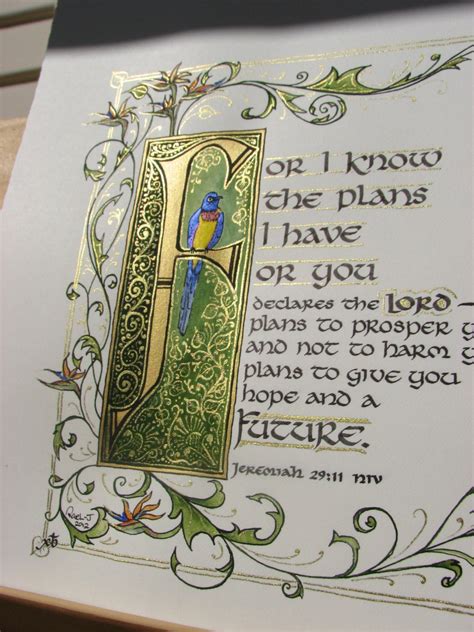 For I know
the plans
I have
or you
declares the LORD —
plans to prosper y
and not to harm y
plans to give you
hope and a
Future.
Jeremiah 29:11 NIV
2012